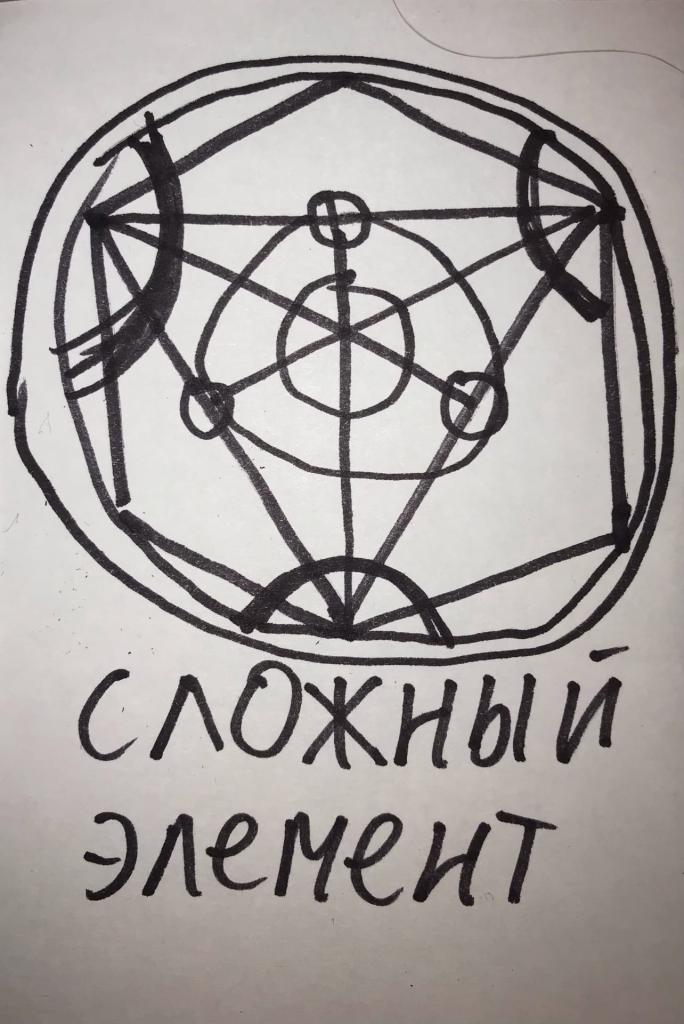 сложный
элемент